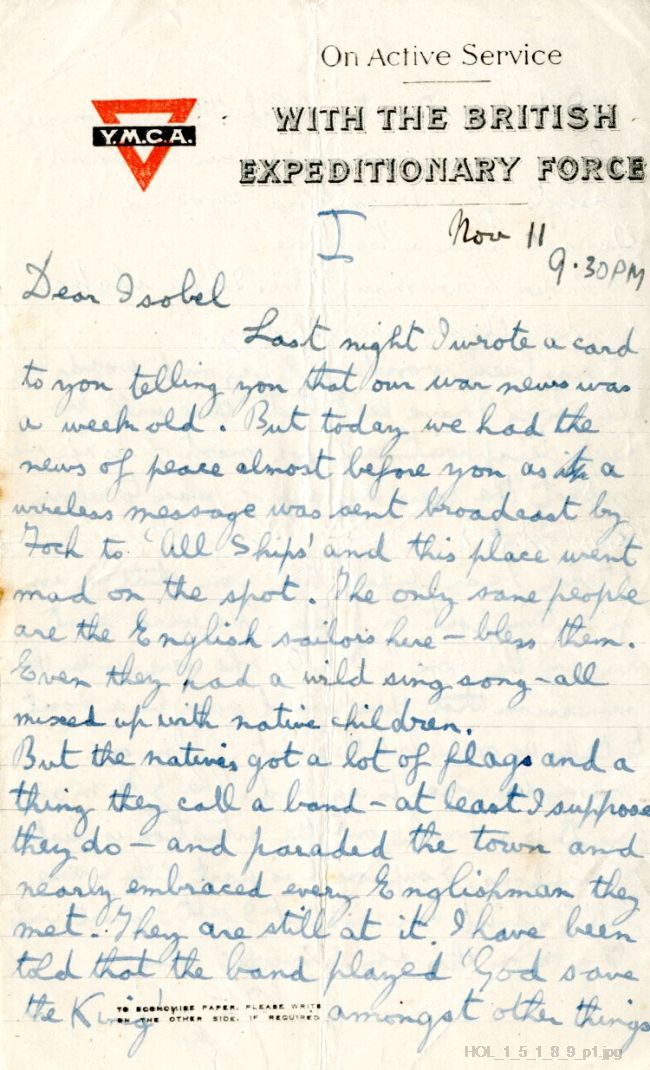 On Active Service
Y.M.C.A.
WITH THE BRITISH
EXPEDITIONARY FORCE
I
Nov 11
9.30PM
Dear Isobel
Last night I wrote a card
to you telling you that our war news was
a week old. But today we had the
news of peace almost before you as a
wireless message was sent broadcast by
Foch to 'All Ships' and this place went
mad on the spot. The only sane people
are the English sailors here – bless them.
Even they had a wild sing song – all
mixed up with native children.
But the natives got a lot of flags and a
thing they call a band – at least I suppose
they do – and paraded the town and
nearly embraced every Englishman they
met. They are still at it. I have been
told that the band played 'God save
the King' amongst other things
TO ECONOMISE PAPER, PLEASE WRITE
ON THE OTHER SIDE, IF REQUIRED
HOL_1_5_1_8_9_p1.jpg